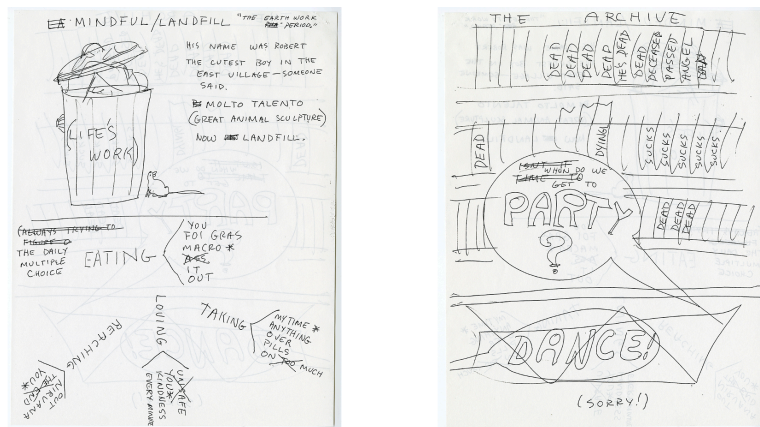 MINDFUL/LANDFILL "THE EARTH WORK
PERIOD."
HIS NAME WAS ROBERT
THE CUTEST BOY IN THE
EAST VILLAGE—SOMEONE
SAID.
MOLTO TALENTO
(GREAT ANIMAL SCULPTURE)
NOW LANDFILL.
LIFE'S
WORK
(ALWAYS TRYING TO
FIGURE O
THE DAILY
MULTIPLE
CHOICE
EATING
YOU
FOI GRAS
MACRO *
ASS
IT
OUT
REACHING
OUT
NIRVANA
THE END
YOU *
LOVING
UNSAFE
YOU *
KINDNESS
EVERY MINUTE
TAKING
MY TIME *
ANYTHING
OVER
PILLS
ON TOO MUCH
THE ARCHIVE
DEAD
DEAD
DEAD
DEAD
HE'S DEAD
DEAD
DECEASED
PASSED
ANGEL
DEAD
DEAD
DYING
SUCKS
SUCKS
SUCKS
SUCKS
SUCKS
ISNT IT
TIME TO
WHEN DO WE
GET TO
PARTY
?
DEAD
DEAD
DEAD
DANCE!
(SORRY!)